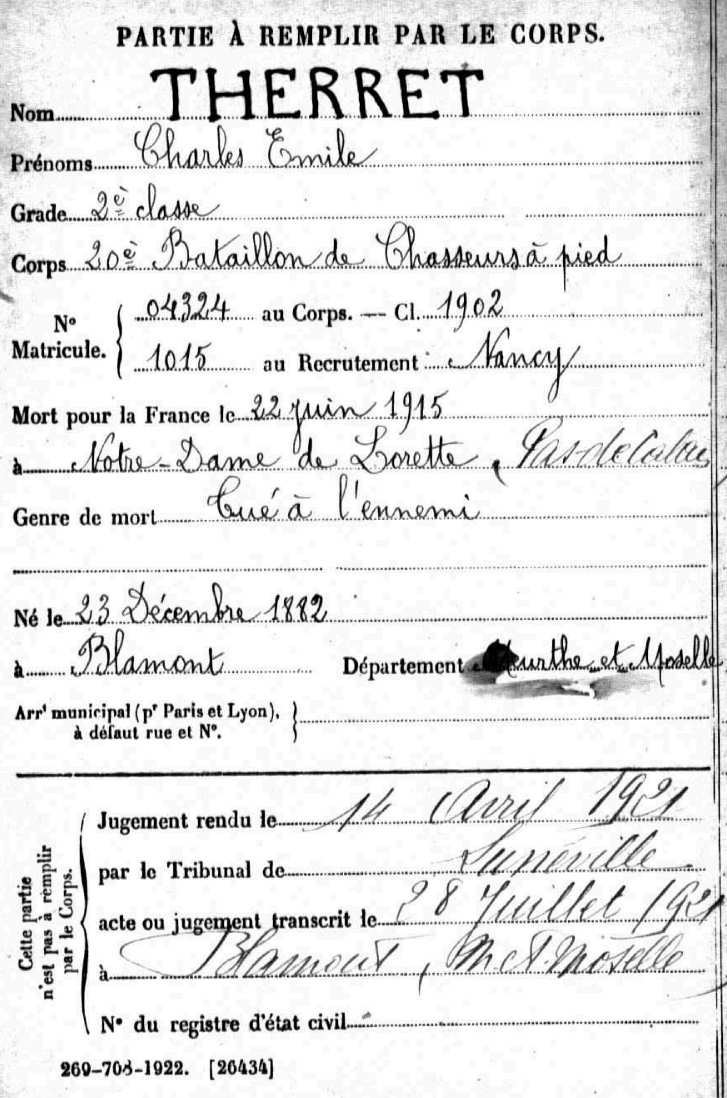 PARTIE À REMPLIR PAR LE CORPS.
Nom THERRET
Prénoms Charles Emile
Grade 2è classe
Corps 20è Bataillon de Chasseurs à pied
N° Matricule. { 04324 au Corps. — Cl. 1902
1015 au Recrutement Nancy
Mort pour la France le 22 juin 1915
à Notre-Dame de Lorette, Pas de Calais
Genre de mort Tué à l'ennemi
Né le 23 Décembre 1882
à Blamont Département Meurthe et Moselle
Arrt municipal (pr Paris et Lyon), }
à défaut rue et N°.
Cette partie n'est pas à remplir par le Corps.
Jugement rendu le 14 Avril 1921
par le Tribunal de Lunéville
acte ou jugement transcrit le 28 Juillet 1921
à Blamont, M et Moselle
N° du registre d'état civil
269-708-1922. [26434]